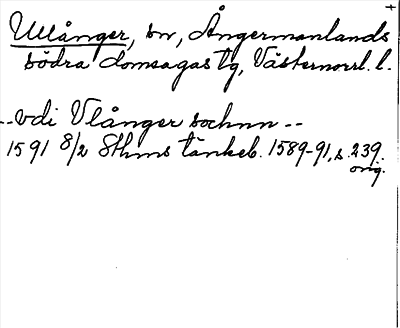 Ullånger, sn, Ångermanlands
södra domsagas tg, Västernorrl. l.
--vdi Vlånger sochnn--
1591 8/2 Sthms tänkeb. 1589-91, s. 239.
orig.